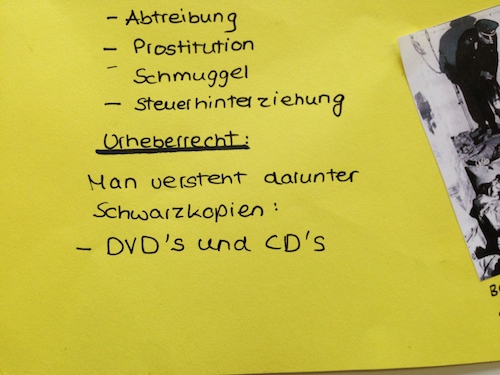 - Abtreibung
- Prostitution
- Schmuggel
- Steuerhinterziehung
Urheberrecht:
Man versteht darunter
Schwarzkopien:
- DVD's und CD's